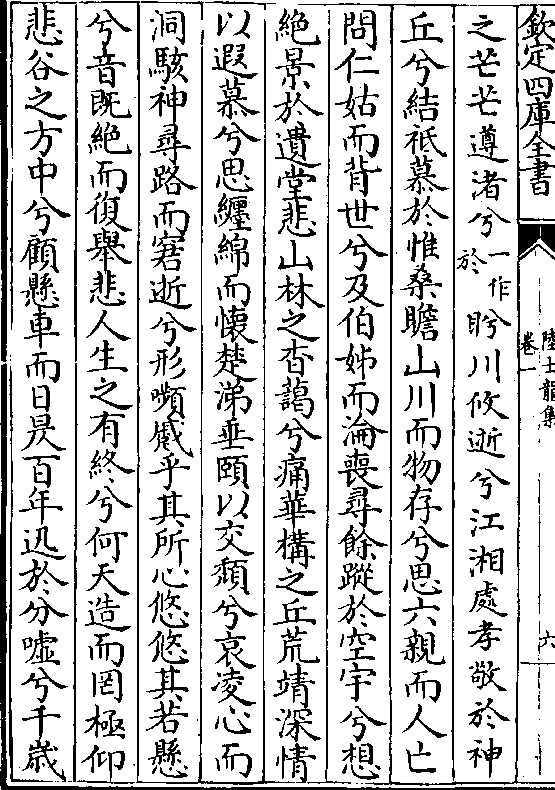 欽定四庫全書
陸士龍集
卷一
六
之芒芒遵渚兮一作於盻川攸逝兮江湘處孝敬於神
丘兮結祗慕於惟桑瞻山川而物存兮思六親而人亡
問仁姑而背世兮及伯姊而淪喪尋餘蹤於空宇兮想
絶景於遺堂悲山林之杳藹兮痛華構之丘荒靖深情
以遐慕兮思纏綿而懷楚涕垂頤以交頹兮哀凌心而
洞駭神尋路而窘逝兮形嚬慼乎其所心悠悠其若懸
兮音既絶而復舉悲人生之有終兮何天造而罔極仰
悲谷之方中兮顧懸車而日昃百年迅於分噓兮千歳